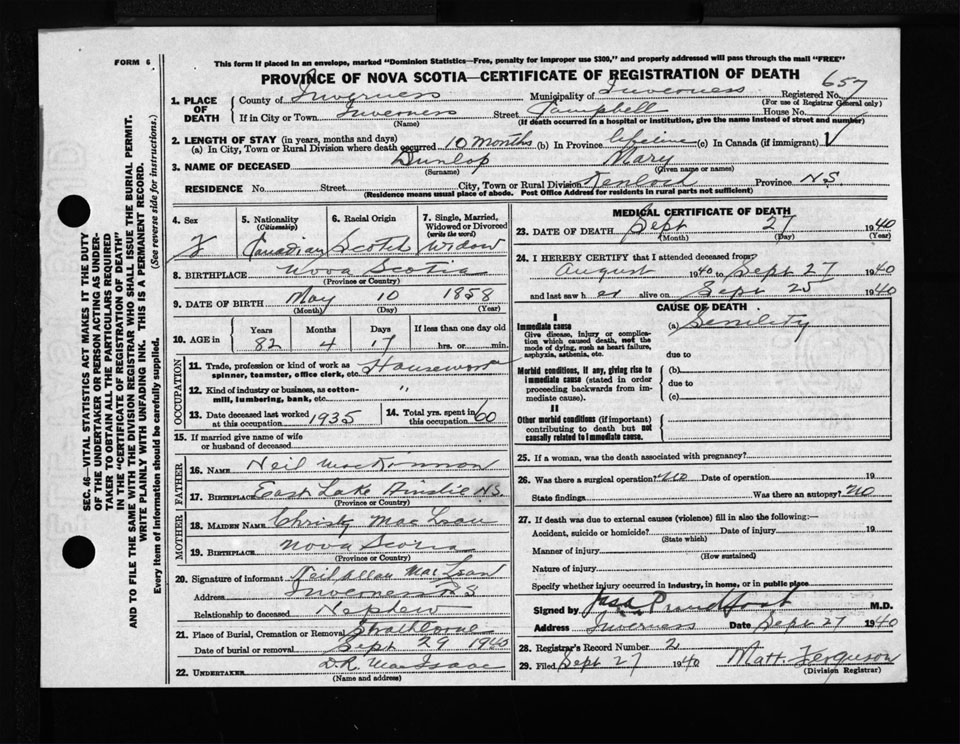 FORM 6
This form if placed in an envelope, marked "Dominion Statistics—Free, penalty for improper use $300," and properly addressed will pass through the mail "FREE"
PROVINCE OF NOVA SCOTIA—CERTIFICATE OF REGISTRATION OF DEATH
657
1. PLACE OF DEATH County of Inverness Municipality of Inverness Registered No.
(For use of Registrar General only)
If in City or Town Inverness Street Campbell House No.
(Name) (If death occurred in a hospital or institution, give the name instead of street and number)
2. LENGTH OF STAY (in years, months and days)
(a) In City, Town or Rural Division where death occurred 10 months (b) In Province Lifetime (c) In Canada (if immigrant)
3. NAME OF DECEASED Dunlop Mary
(Surname) (Given name or names)
RESIDENCE No. Street City, Town or Rural Division Kenloch Province N.S.
(Residence means usual place of abode. Post Office Address for residents in rural parts not sufficient)
4. Sex 5. Nationality (Citizenship) 6. Racial Origin 7. Single, Married, Widowed or Divorced (write the word)
F Canadian Scotch Widow
8. BIRTHPLACE Nova Scotia
(Province or Country)
9. DATE OF BIRTH May 10 1858
(Month) (Day) (Year)
10. AGE in Years Months Days If less than one day old
82 4 17 hrs. or min.
OCCUPATION
11. Trade, profession or kind of work as spinner, teamster, office clerk, etc. Housework
12. Kind of industry or business, as cotton-mill, lumbering, bank, etc. "
13. Date deceased last worked at this occupation 1935 14. Total yrs. spent in this occupation 60
15. If married give name of wife or husband of deceased
FATHER
16. NAME Neil MacKinnon
17. BIRTHPLACE East Lake Ainslie N.S.
(Province or Country)
MOTHER
18. MAIDEN NAME Christy MacLean
19. BIRTHPLACE Nova Scotia
(Province or Country)
20. Signature of informant Neil Allan MacLean
Address Inverness N.S.
Relationship to deceased Nephew
21. Place of Burial, Cremation or Removal Strathlorne
Date of burial or removal Sept 29 1940
22. UNDERTAKER D.R. MacIsaac
(Name and address)
MEDICAL CERTIFICATE OF DEATH
23. DATE OF DEATH Sept 27 1940
(Month) (Day) (Year)
24. I HEREBY CERTIFY that I attended deceased from:
August 1940 to Sept 27 1940
and last saw her alive on Sept 25 1940
CAUSE OF DEATH
I
Immediate cause (a) Senility
Give disease, injury or complication which caused death, not the mode of dying, such as heart failure, asphyxia, asthenia, etc.
due to
Morbid conditions, if any, giving rise to immediate cause (stated in order proceeding backwards from immediate cause).
(b)
due to
(c)
II
Other morbid conditions (if important) contributing to death but not causally related to immediate cause.
25. If a woman, was the death associated with pregnancy?
26. Was there a surgical operation? No Date of operation 19
State findings Was there an autopsy? No
27. If death was due to external causes (violence) fill in also the following:—
Accident, suicide or homicide? Date of injury 19
(State which)
Manner of injury
(How sustained)
Nature of injury
Specify whether injury occurred in industry, in home, or in public place
Signed by Proudfoot M.D.
Address Inverness Date Sept 27 1940
28. Registrar's Record Number 2
29. Filed Sept 27 1940 Matt. Ferguson
(Division Registrar)
SEC. 46—VITAL STATISTICS ACT MAKES IT THE DUTY
OF THE UNDERTAKER OR PERSON ACTING AS UNDER-
TAKER TO OBTAIN ALL THE PARTICULARS REQUIRED
IN THE "CERTIFICATE OF REGISTRATION OF DEATH"
AND TO FILE THE SAME WITH THE DIVISION REGISTRAR WHO SHALL ISSUE THE BURIAL PERMIT.
WRITE PLAINLY WITH UNFADING INK. THIS IS A PERMANENT RECORD.
Every item of Information should be carefully supplied. (See reverse side for instructions.)